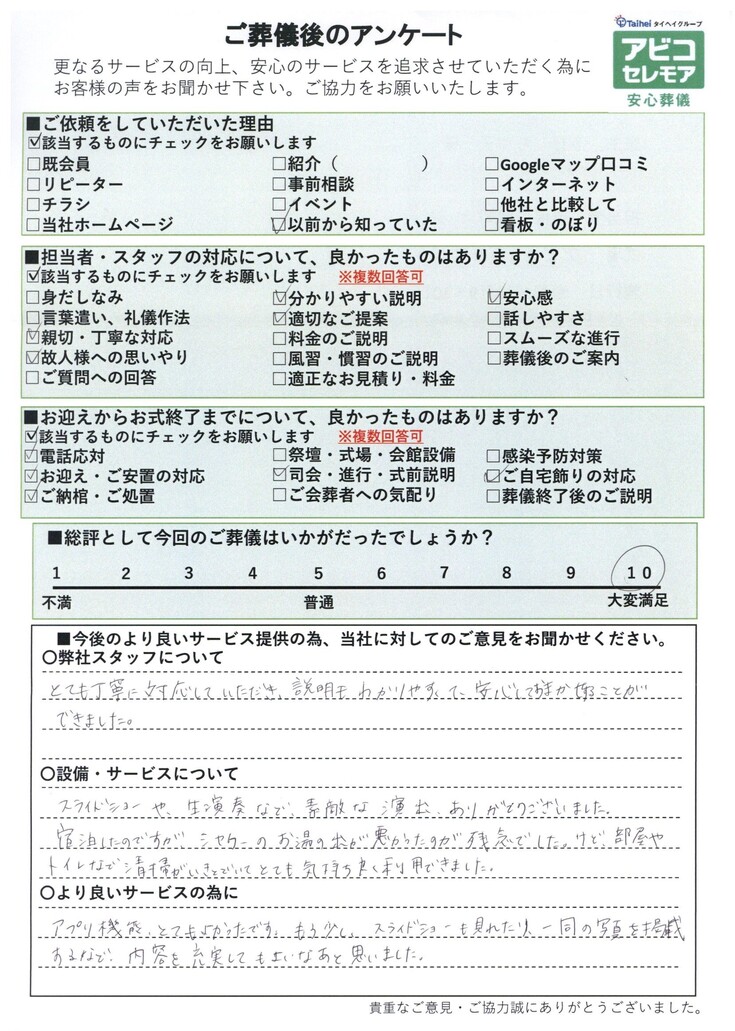 ご葬儀後のアンケート
Taihei タイヘイグループ
アビコ
セレモア
安心葬儀
更なるサービスの向上、安心のサービスを追求させていただく為に
お客様の声をお聞かせ下さい。ご協力をお願いいたします。
■ご依頼をしていただいた理由
☑該当するものにチェックをお願いします
□既会員 □紹介（ ） □Googleマップ口コミ
□リピーター □事前相談 □インターネット
□チラシ □イベント □他社と比較して
□当社ホームページ ☑以前から知っていた □看板・のぼり
■担当者・スタッフの対応について、良かったものはありますか？
☑該当するものにチェックをお願いします ※複数回答可
□身だしなみ ☑分かりやすい説明 ☑安心感
□言葉遣い、礼儀作法 ☑適切なご提案 □話しやすさ
☑親切・丁寧な対応 □料金のご説明 □スムーズな進行
☑故人様への思いやり □風習・慣習のご説明 □葬儀後のご案内
□ご質問への回答 □適正なお見積り・料金
■お迎えからお式終了までについて、良かったものはありますか？
☑該当するものにチェックをお願いします ※複数回答可
☑電話応対 □祭壇・式場・会館設備 □感染予防対策
☑お迎え・ご安置の対応 ☑司会・進行・式前説明 ☑ご自宅飾りの対応
☑ご納棺・ご処置 □ご会葬者への気配り □葬儀終了後のご説明
■総評として今回のご葬儀はいかがだったでしょうか？
1 2 3 4 5 6 7 8 9 10
不満 普通 大変満足
■今後のより良いサービス提供の為、当社に対してのご意見をお聞かせください。
〇弊社スタッフについて
とても丁寧に対応していただき、説明もわかりやすくて、安心してお任せすることが
できました。
〇設備・サービスについて
スライドショーや、生演奏など、素敵な演出、ありがとうございました。
宿泊したのですが、シャワーのお湯の出が悪かったのが残念でした。けど、部屋や
トイレなど清掃がいきとどいてとても気持ち良く利用できました。
〇より良いサービスの為に
アプリ機能、とてもよかったです。もう少し、スライドショーも見れたり、一同の写真を掲載
するなど、内容を充実してもよいなあと思いました。
貴重なご意見・ご協力誠にありがとうございました。